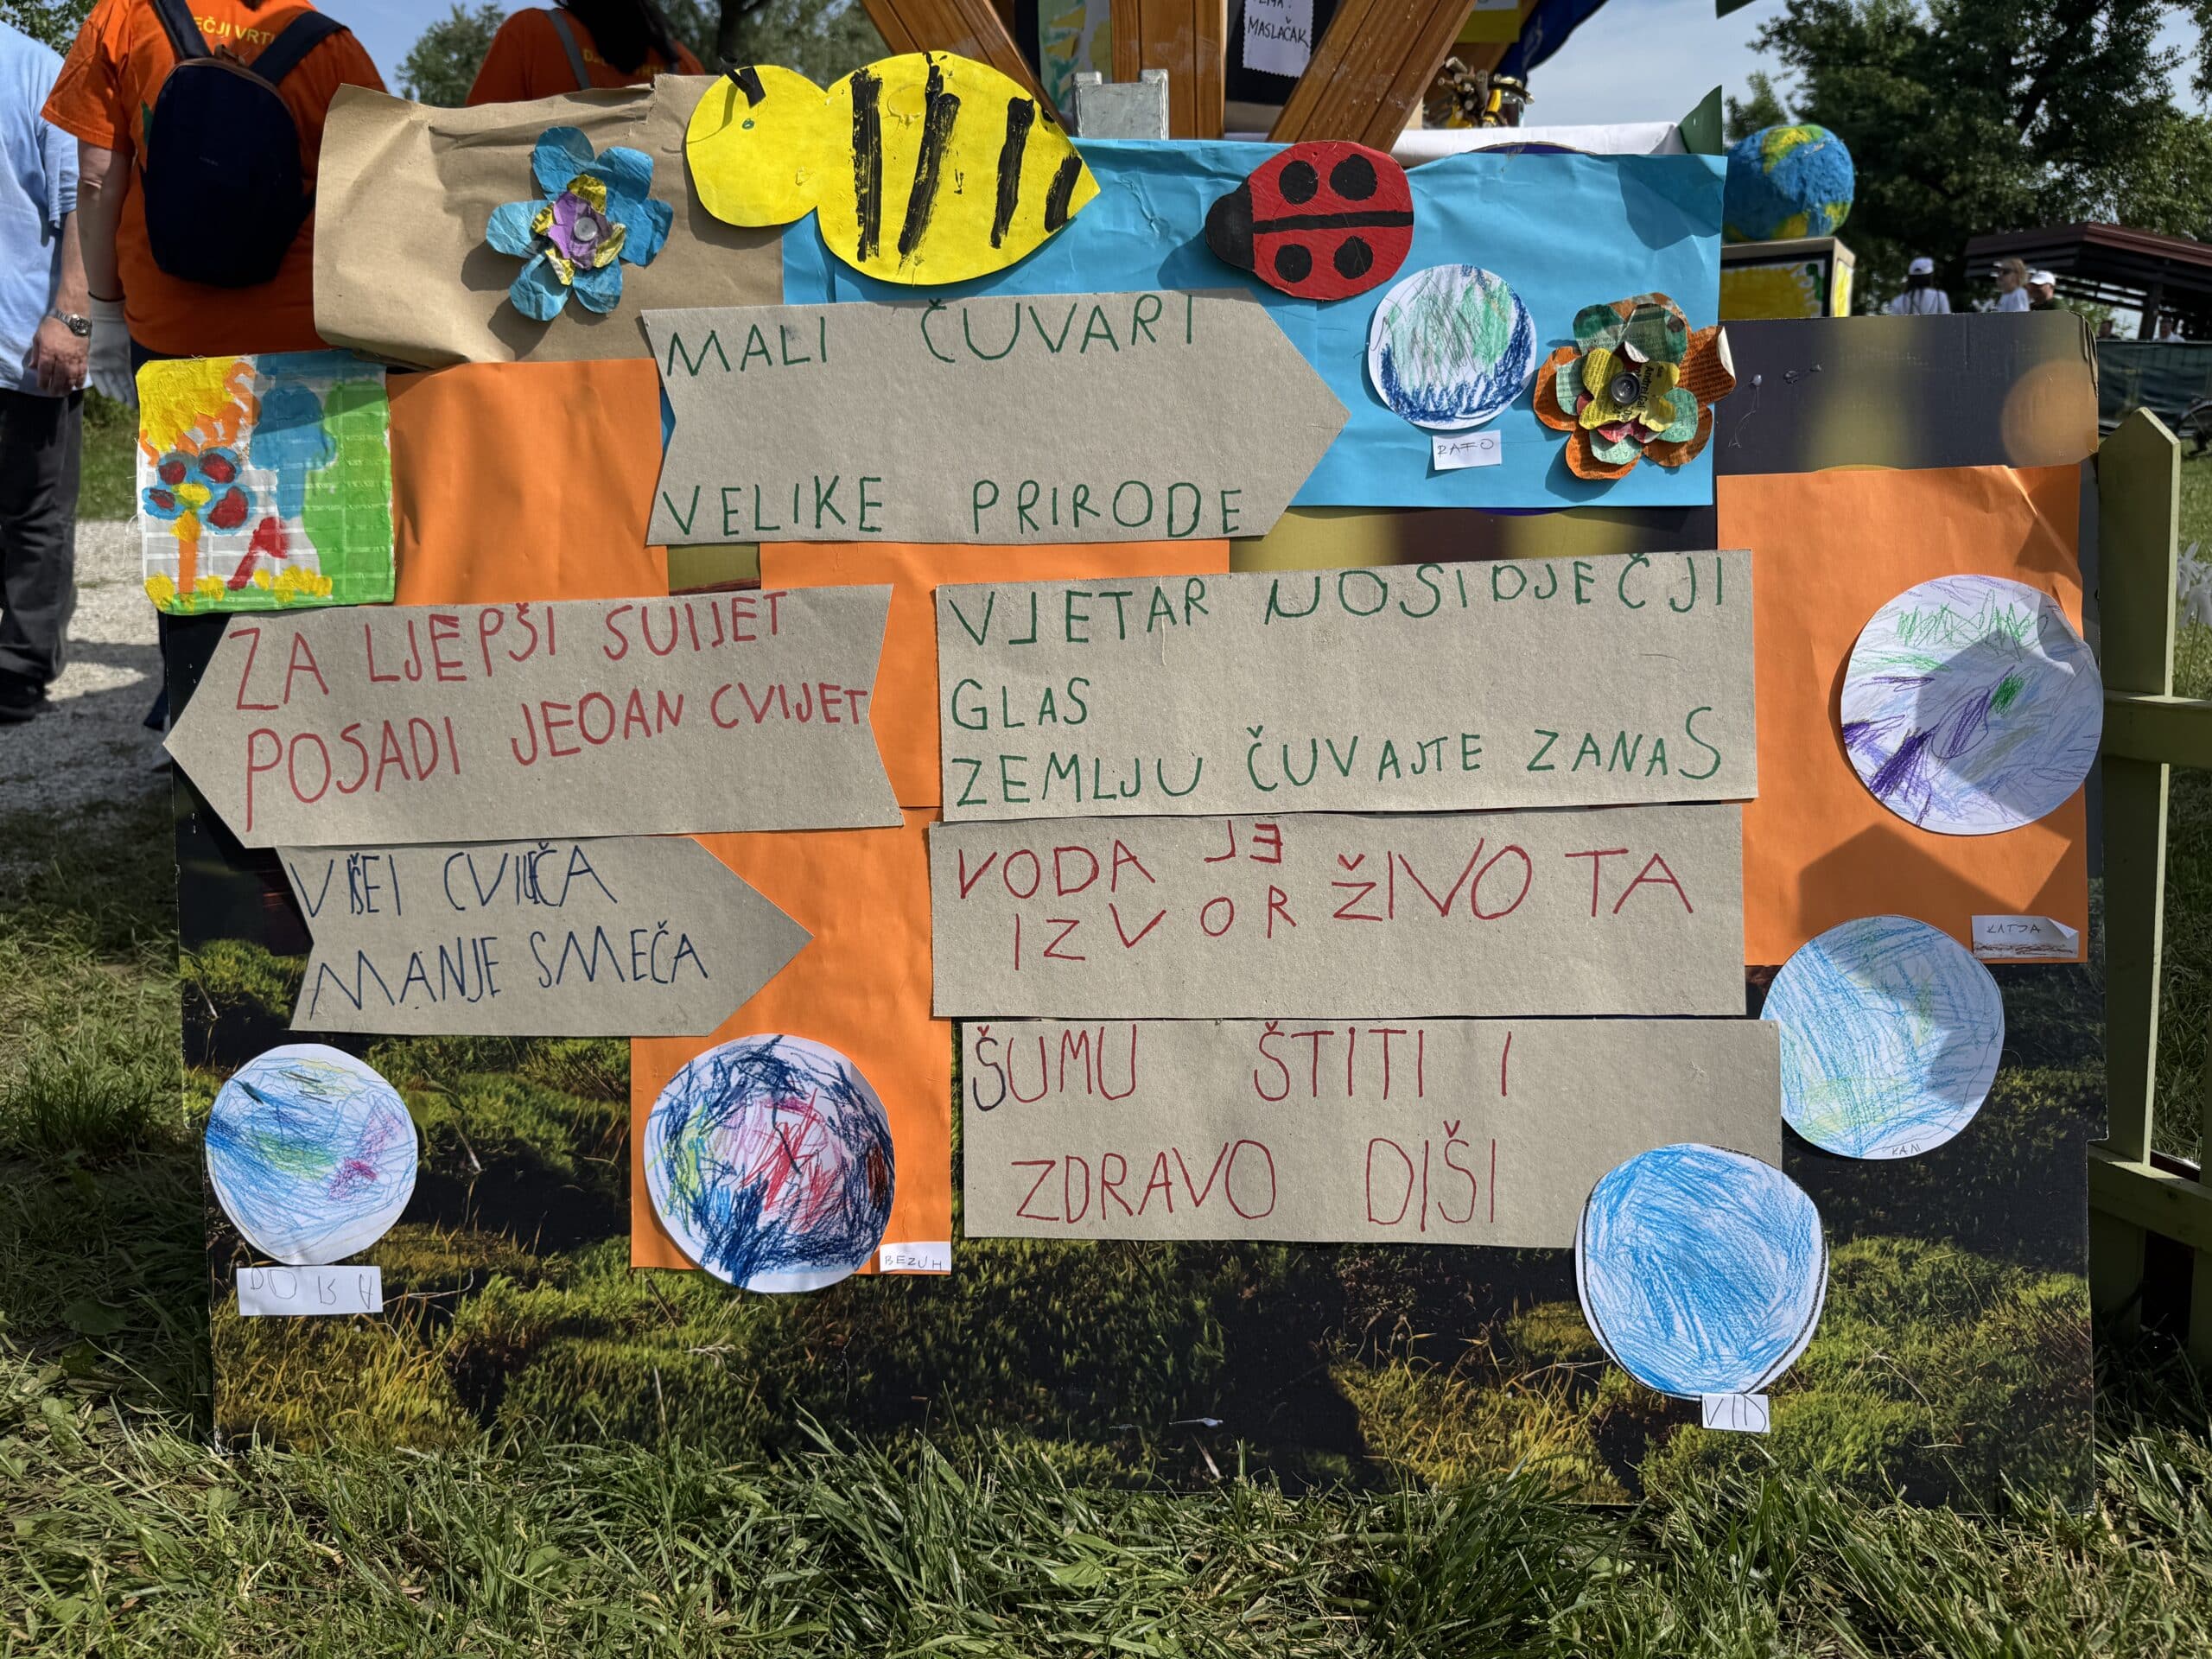 MASLAČAK
MALI ČUVARI
VELIKE PRIRODE
RAFO
ZA LJEPŠI SVIJET
POSADI JEDAN CVIJET
VJETAR NOSI DJEČJI
GLAS
ZEMLJU ČUVAJTE ZANAS
VIŠEI CVIJEĆA
MANJE SMEČA
VODA JE
IZVOR ŽIVOTA
ŠUMU ŠTITI I
ZDRAVO DIŠI
KATJA
KAN
DORA
BEZUH
VID